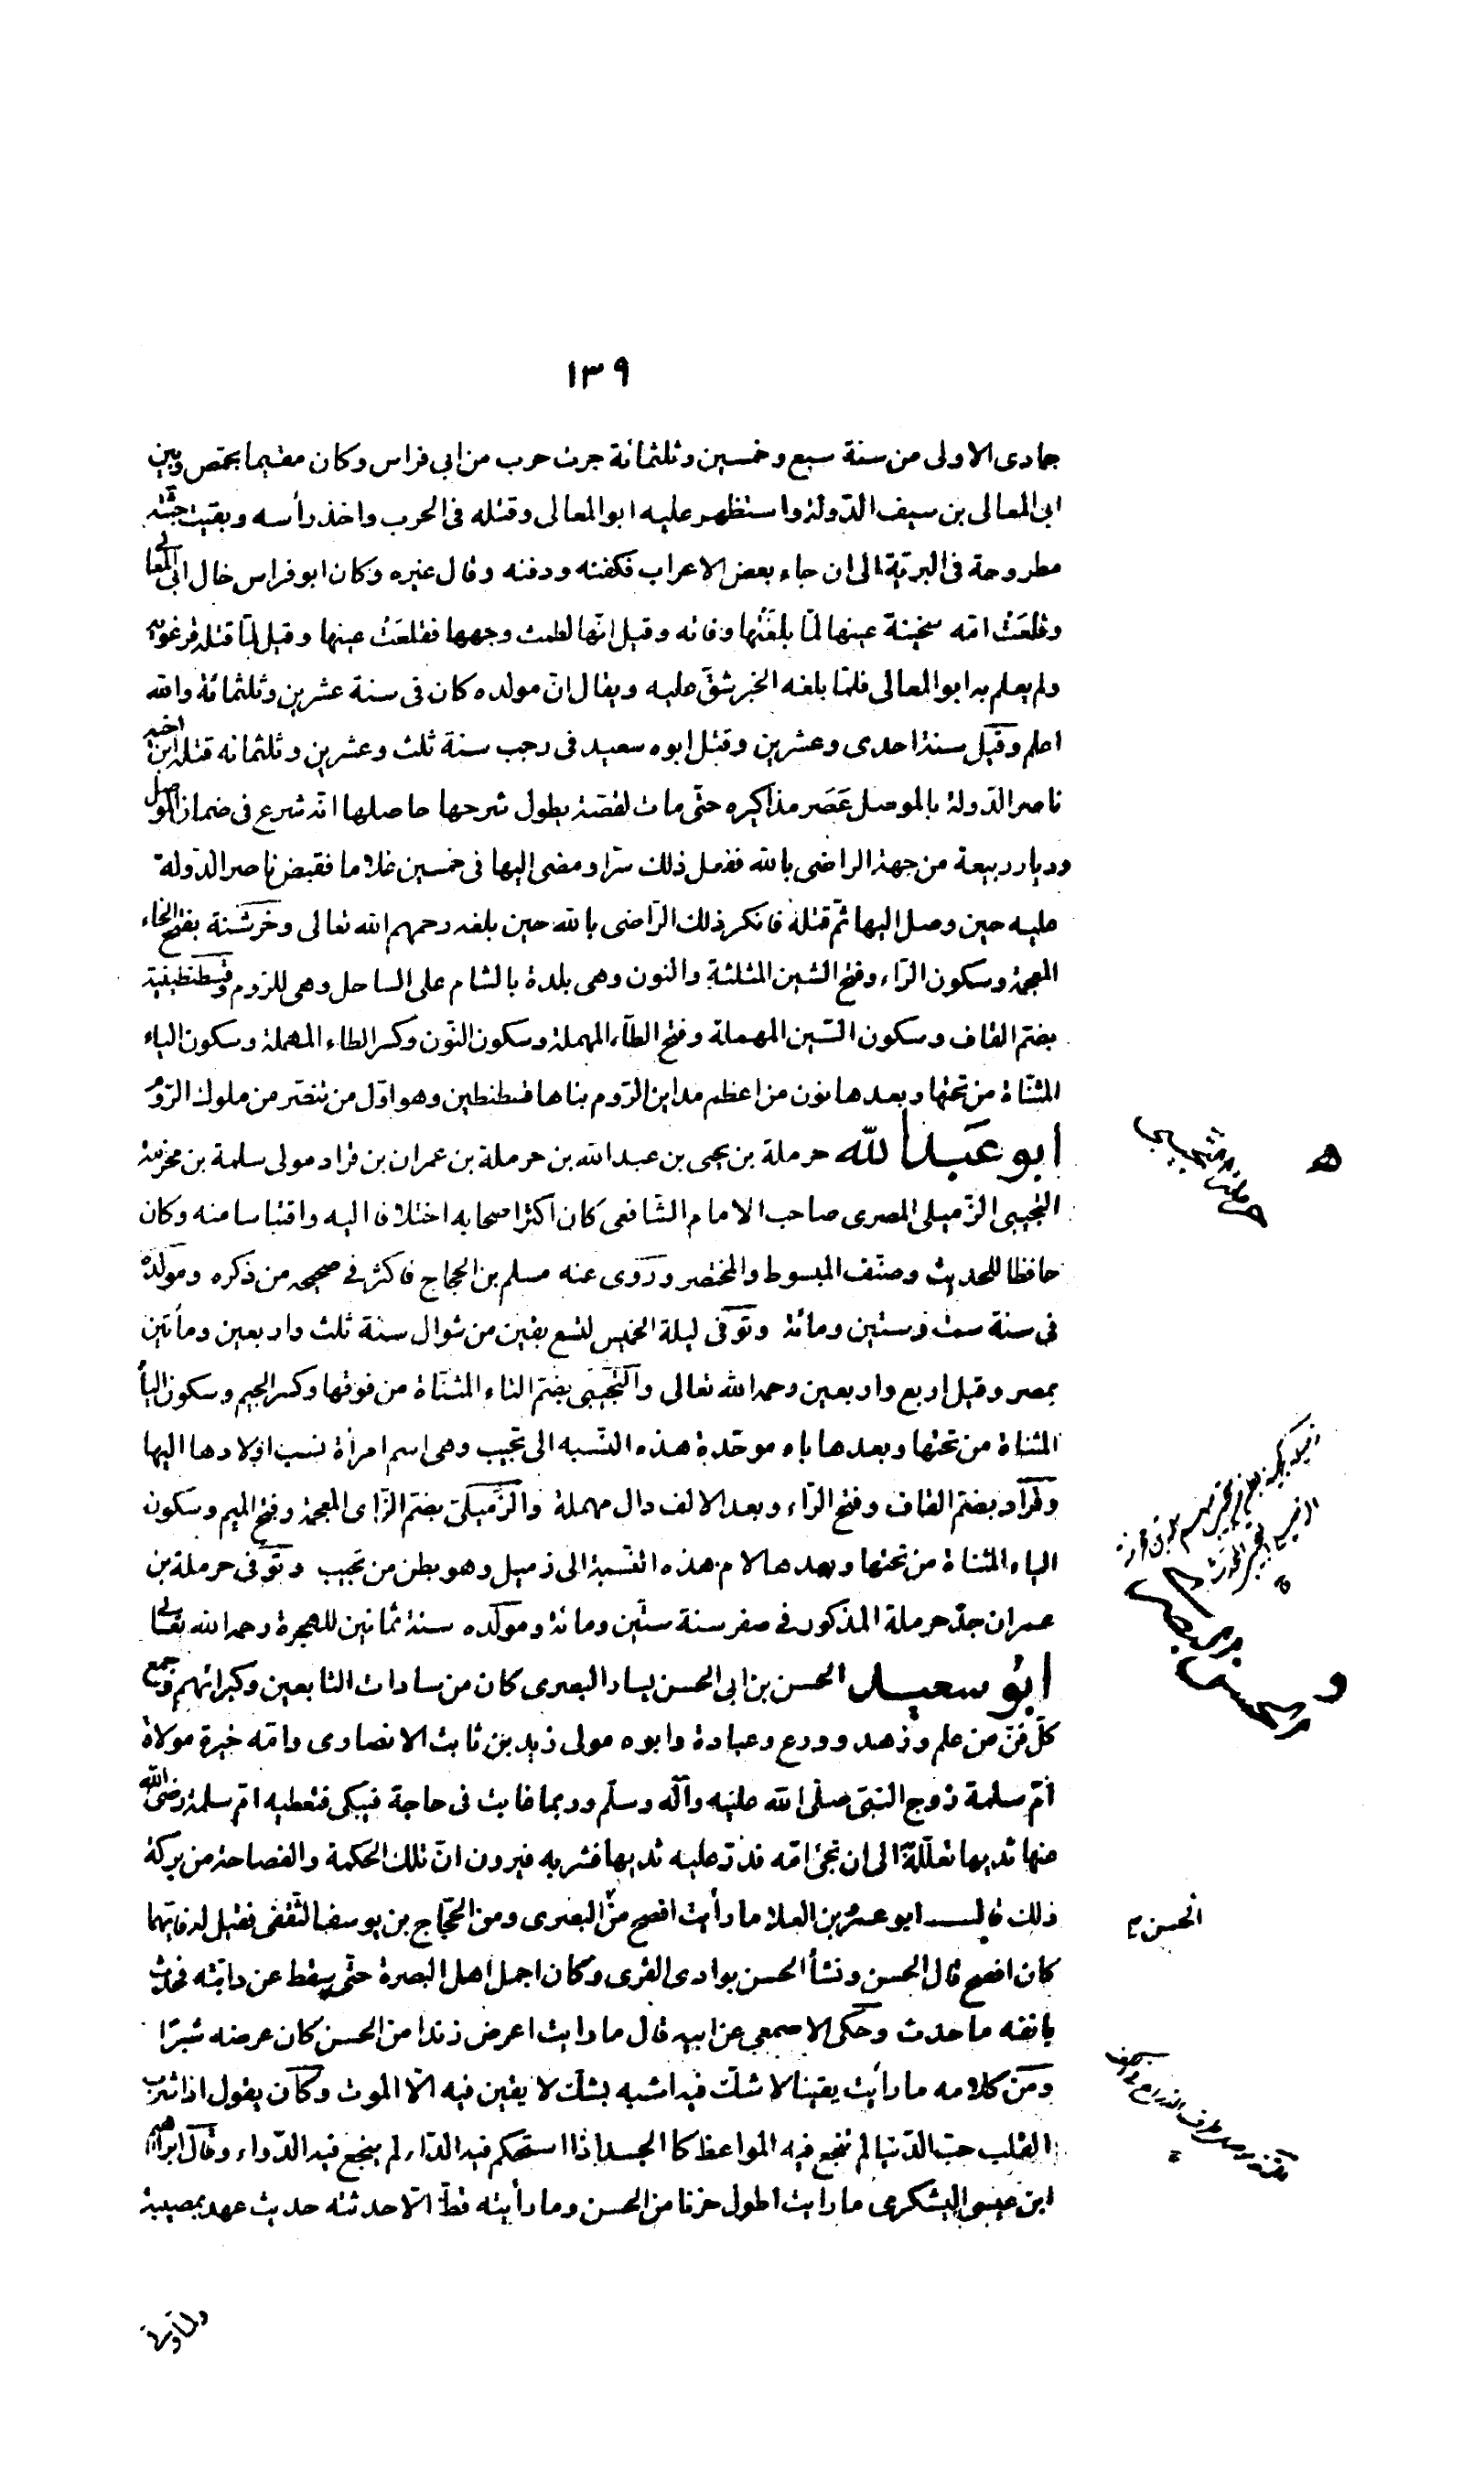 ١٣٩
جمادى الاولى من سنة سبع وخمسين وثلثمائة جرت حرب من ابى فراس وكان مقيما بحمص وبين
ابى المعالى بن سيف الدّولة واستظهر عليه ابو المعالى وقتله فى الحرب واخذ رأسه وبقيت جثّته
مطروحة فى البريّة الى ان جاء بعض الاعراب فكفنه ودفنه وقال غيره وكان ابو فراس خال ابى المعالى
وقلعت امّه سخينة عينها لمّا بلغتها وفاته وقيل انّها لطمت وجهها فقلعت عينها وقيل لمّا قتله قرغويه
ولم يعلم به ابو المعالى فلمّا بلغه الخبر شقّ عليه ويقال انّ مولده كان فى سنة عشرين وثلثمائة والله
اعلم وقيل سنة احدى وعشرين وقتل ابوه سعيد فى رجب سنة ثلث وعشرين وثلثمائه قتله ابن اخيه
ناصر الدّولة بالموصل عَصَر مذاكيره حتّى مات لقصّة يطول شرحها حاصلها انّه شرع فى ضمان الموصل
وديار ربيعة من جهة الراضى بالله ففعل ذلك سرّا ومضى اليها فى خمسين غلاما فقبض ناصر الدّولة
عليه حين وصل اليها ثمّ قتله فانكر ذلك الرّاضى بالله حين بلغه رحمهم الله تعالى وخرشنة بفتح الخاء
المعجمة وسكون الرّاء وفتح الشين المثلثة والنون وهى بلدة بالشام على الساحل وهى للروم وقسطنطينية
بضمّ القاف وسكون السّين المهملة وفتح الطّاء المهملة وسكون النّون وكسر الطاء المهملة وسكون الياء
المثنّاة من تحتها وبعدها نون من اعظم مداين الرّوم بناها قسطنطين وهو اوّل من تنصّر من ملوك الرّوم
أبو عَبد الله حرملة بن يحيى بن عبد الله بن حرملة بن عمران بن قراد مولى سلمة بن مخرمة
التجيبى الزّميلى المصرى صاحب الامام الشّافعى كان اكثر اصحابه اختلافا اليه واقتباسا منه وكان
حافظا للحديث وصنّف المبسوط والمختصر وروى عنه مسلم بن الحجاج فاكثر فى صحيحه من ذكره ومولده
فى سنة ست وستين ومائة وتوفى ليلة الخميس لتسع بقين من شوال سنة ثلث واربعين ومأتين
بمصر وقيل اربع واربعين رحمه الله تعالى والتّجيبى بضمّ التاء المثنّاة من فوقها وكسر الجيم وسكون اليأ
المثناة من تحتها وبعدها باء موحّدة هذه النّسبه الى تجيب وهى اسم امرأة نسب اولادها اليها
وقراد بضمّ القاف وفتح الرّاء وبعد الالف دال مهملة والزّميلىّ بضمّ الزّاى المعجمة وفتح الميم وسكون
الياء المثناة من تحتها وبعدها لام هذه النّسبة الى زميل وهو بطن من تجيب وتوفى حرملة بن
عمران جدّ حرملة المذكور فى صفر سنة ستّين ومائة ومولده سنة ثمانين للهجرة رحمه الله تعالى
ابُو سعيد الحسن بن ابى الحسن يسار البصرى كان من سادات التابعين وكبرائهم وجمع
كلّ فنّ من علم وزهد وورع وعبادة وابوه مولى زيد بن ثابت الانصارى وامّه خيرة مولاة
أمّ سلمة زوج النّبىّ صلّى الله عليه وآله وسلّم وربما غابت فى حاجة فيبكى فتعطيه امّ سلمة رضى الله
عنها ثديها تعلّله الى ان تجئ امّه فدرّ عليه ثديها فشربه فيرون انّ تلك الحكمة والفصاحة من بركة
ذلك قال ابو عمرو بن العلا ما رأيت افصح من البصرى ومن الحجّاج بن يوسف الثّقفى فقيل له فايّهما
كان افصح قال الحسن ونشأ الحسن بوادى القرى وكان اجمل اهل البصرة حتّى سقط عن دابّته فحدث
بانفه ما حدث وحكى الاصمعى عن ابيه قال ما رايت اعرض زندا من الحسن كان عرضه شبرًا
ومن كلامه ما رأيت يقينا لا شكّ فيه اشبه بشكّ لا يقين فيه الّا الموت وكان يقول اذا شرب
القلب حبّ الدّنيا لم تنجع فيه المواعظ كالجسد اذا استحكم فيه الدّاء لم ينجع فيه الدّواء وقال ابراهيم
ابن عيسى اليشكرى ما رايت اطول حزنا من الحسن وما رأيته قطّ الّا حدثته حديث عهد بمصيبة
الحسن